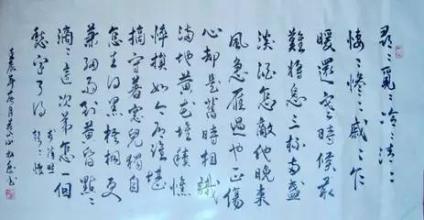 尋々覓々冷々清々
悽々慘々戚々乍
暖還寒時候最
難將息三杯兩盞
淡酒怎敵他晚來
風急雁過也正傷
心卻是舊時相識
滿地黃花堆積憔
悴損如今有誰堪
摘守着窗兒獨自
怎生得黑梧桐更
兼細雨到黃昏點々
滴々這次第怎一個
愁字了得
李清照